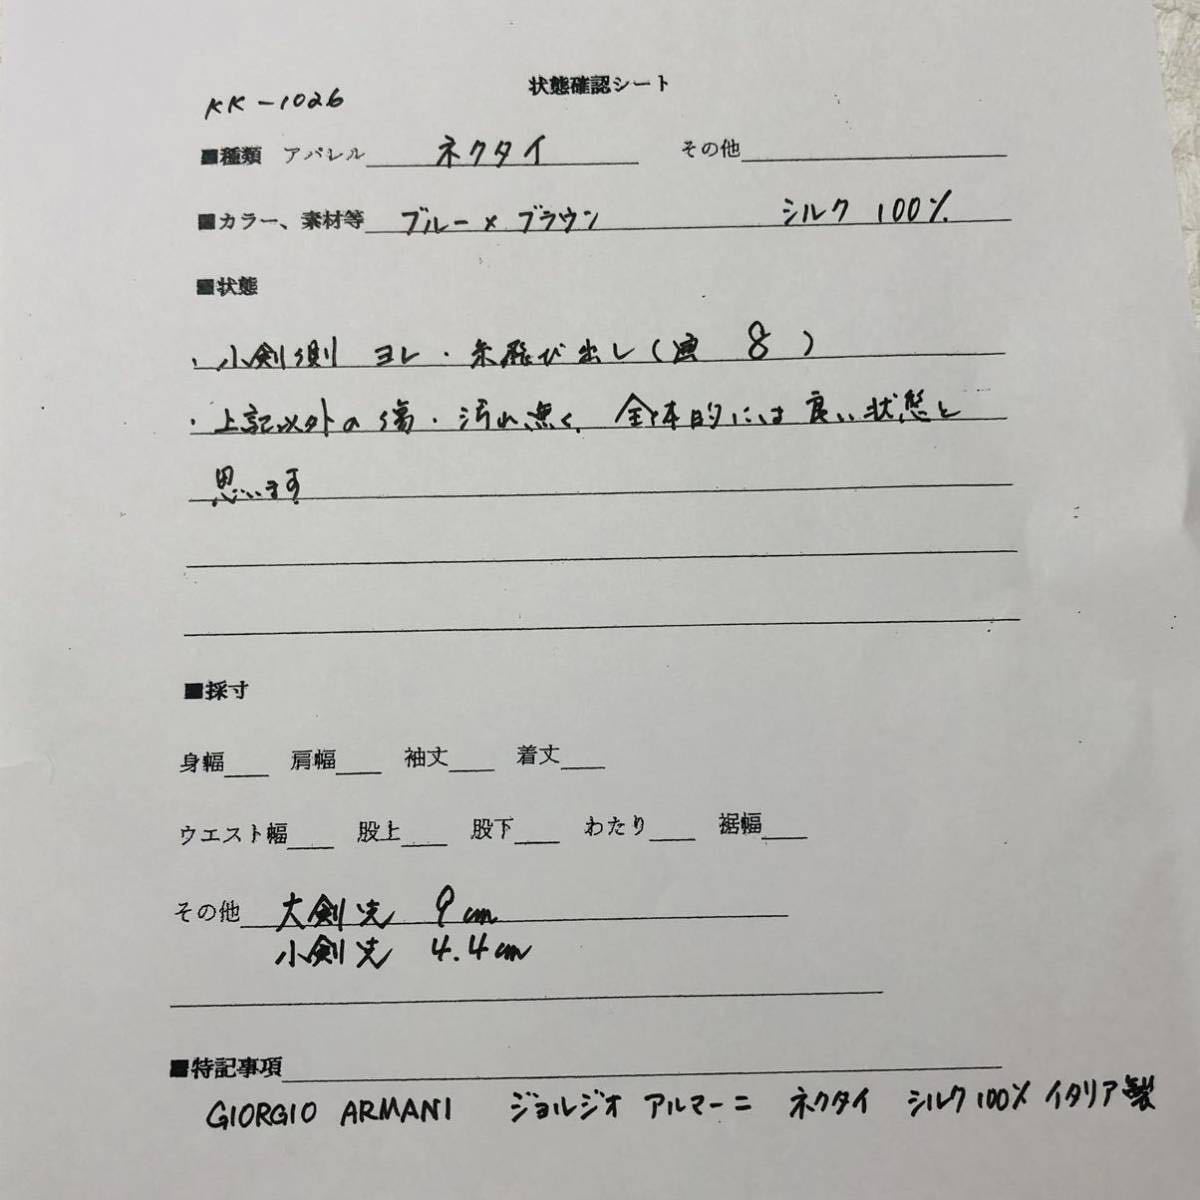 状態確認シート
KK-1026
■種類 アパレル ネクタイ その他
■カラー、素材等 ブルー×ブラウン シルク 100%
■状態
・小剣側 ヨレ・糸飛び出し(画 8)
・上記以外の傷・汚れ無く、全体的には良い状態と
思います
■採寸
身幅 肩幅 袖丈 着丈
ウエスト幅 股上 股下 わたり 裾幅
その他 大剣先 9cm
小剣先 4.4cm
■特記事項
GIORGIO ARMANI ジョルジオ アルマーニ ネクタイ シルク100% イタリア製